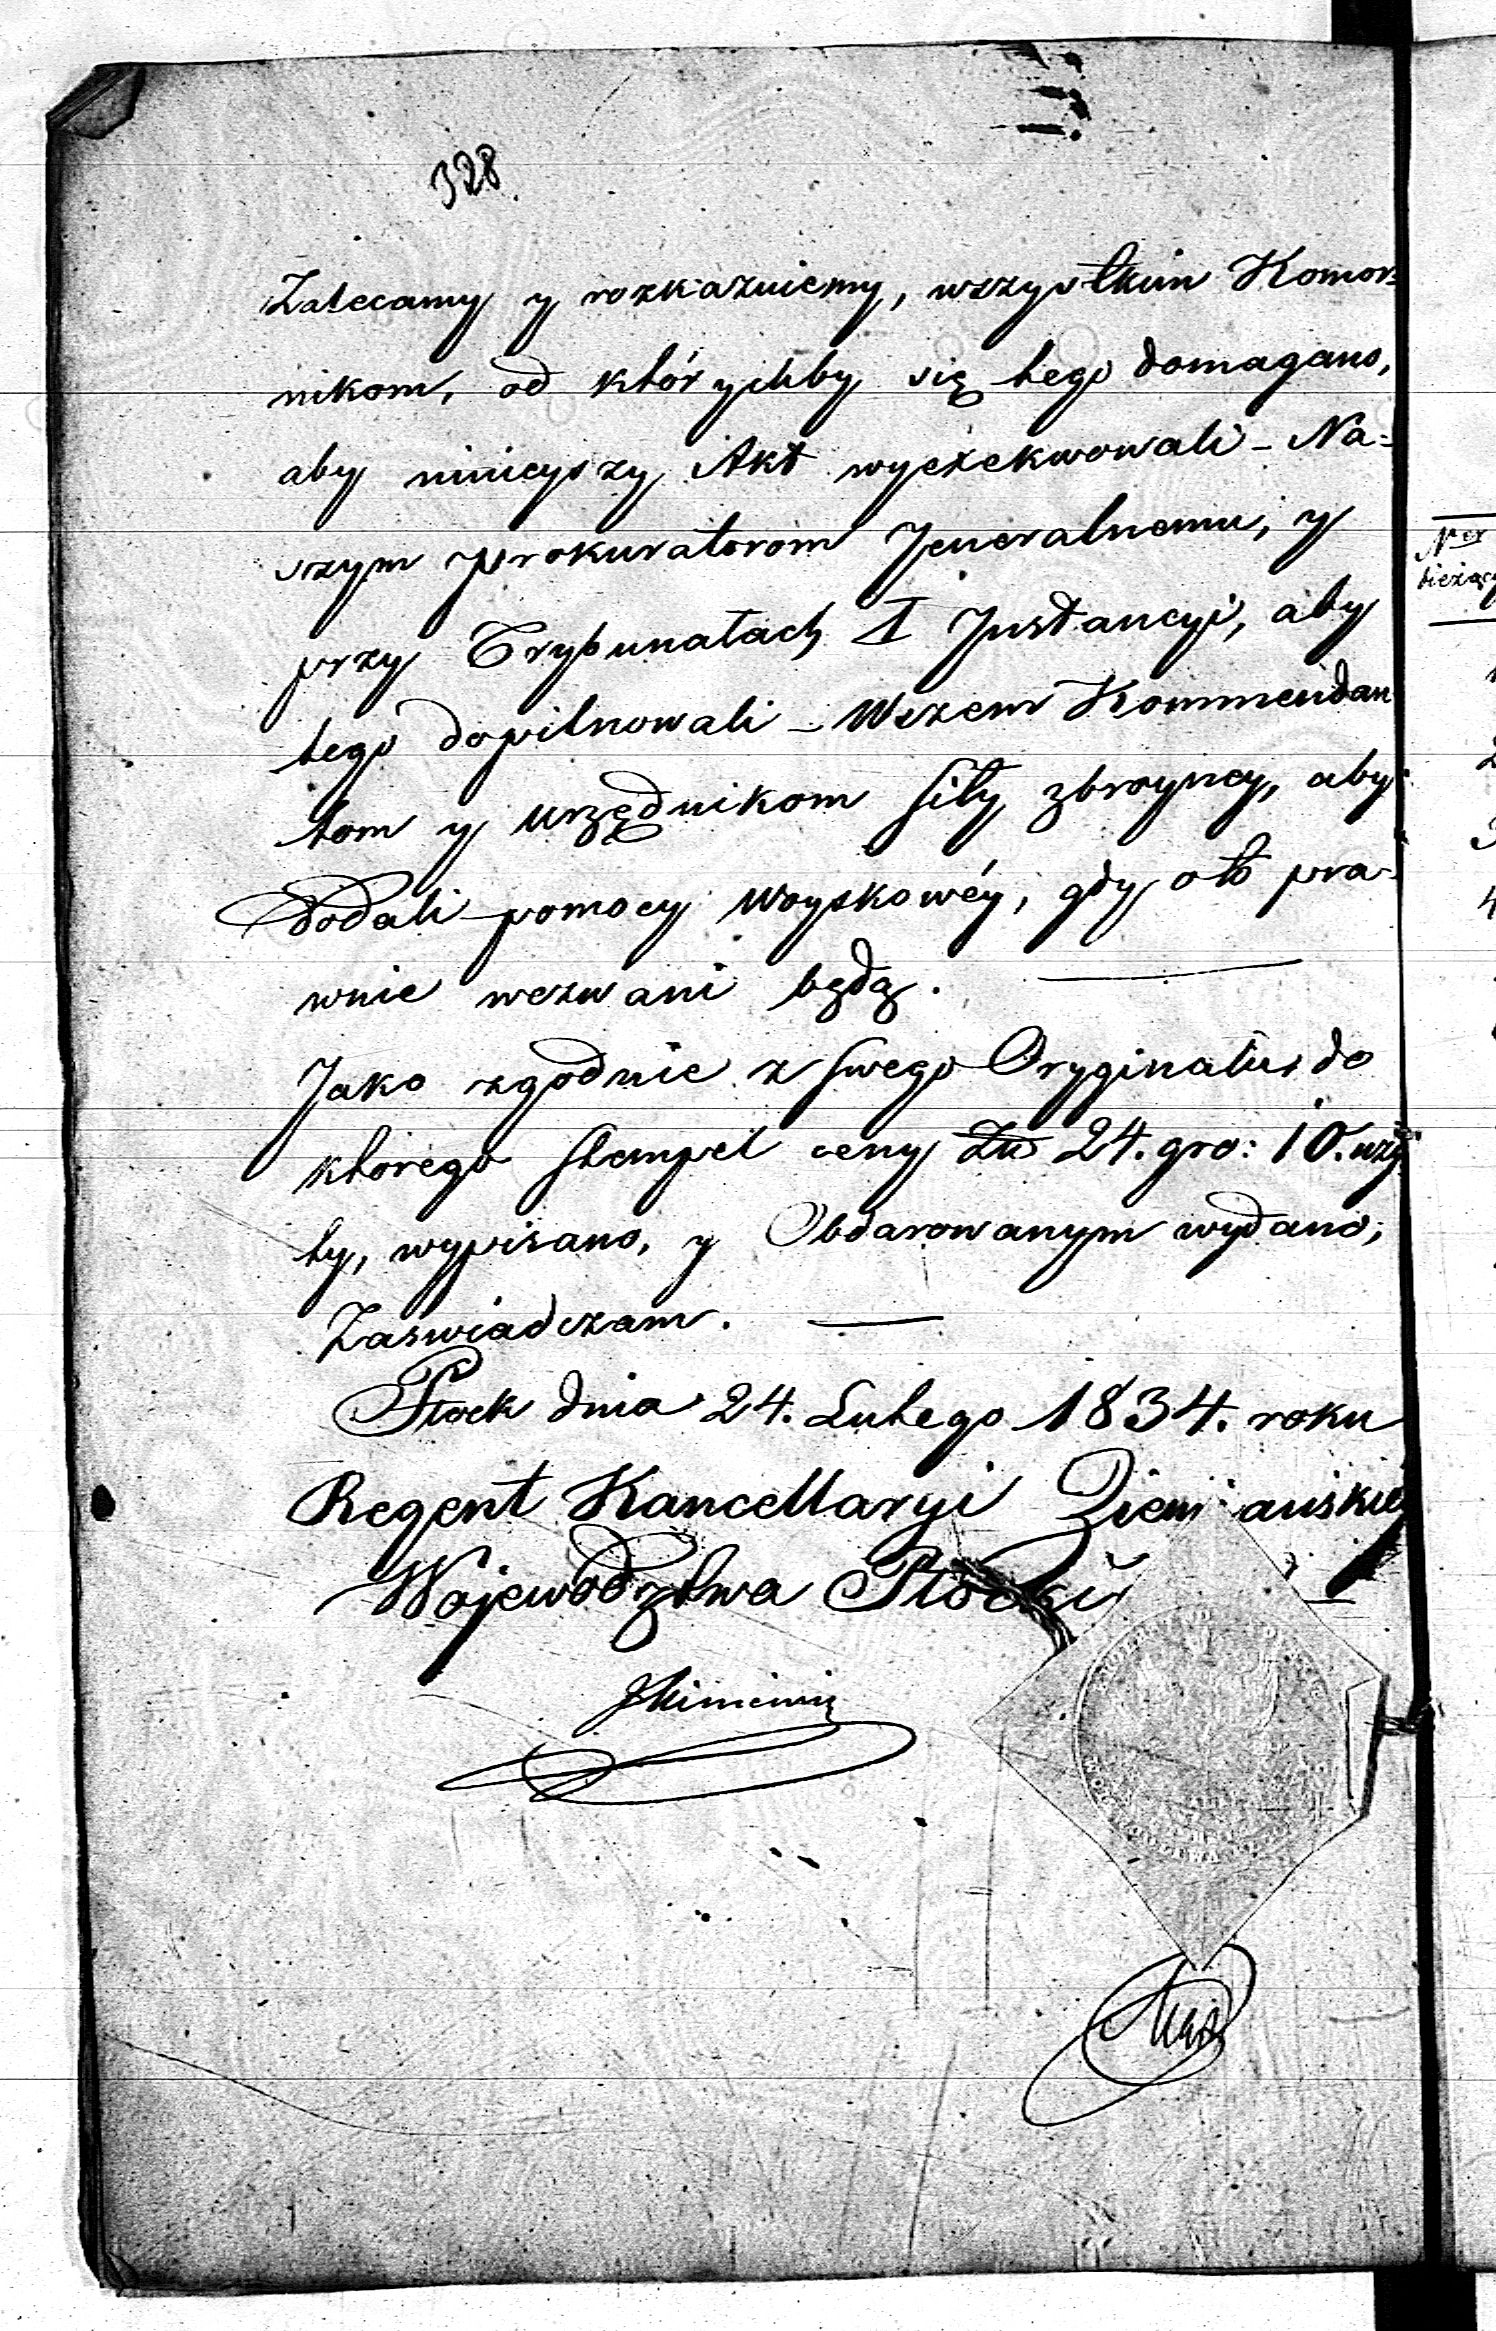 328.
Zalecamy y rozkazuiemy, wszystkim Komor=
nikom, od którychby się tego domagano,
aby ninieyszy Akt wyexekwowali - Na=
szym Prokuratorom Jeneralnemu, y
przy Trybunałach I Instancyi, aby
tego dopilnowali - Wszem Kommendan
tom y urzędnikom siły zbroyney, aby
dodali pomocy woyskowéy, gdy oto pra-
wnie wezwani będą.
Jako zgodnie z swego Oryginału, do
ktorego stempel ceny Zło 24. gro: 10. uży
ty, wypisano, y Obdarowanym wydano,
Zaswiadczam.
Płock dnia 24. Lutego 1834. roku
Regent Kancellaryi Ziemiańskiey
Wojewodztwa Płocki
Ner
bieżący
2
3
4